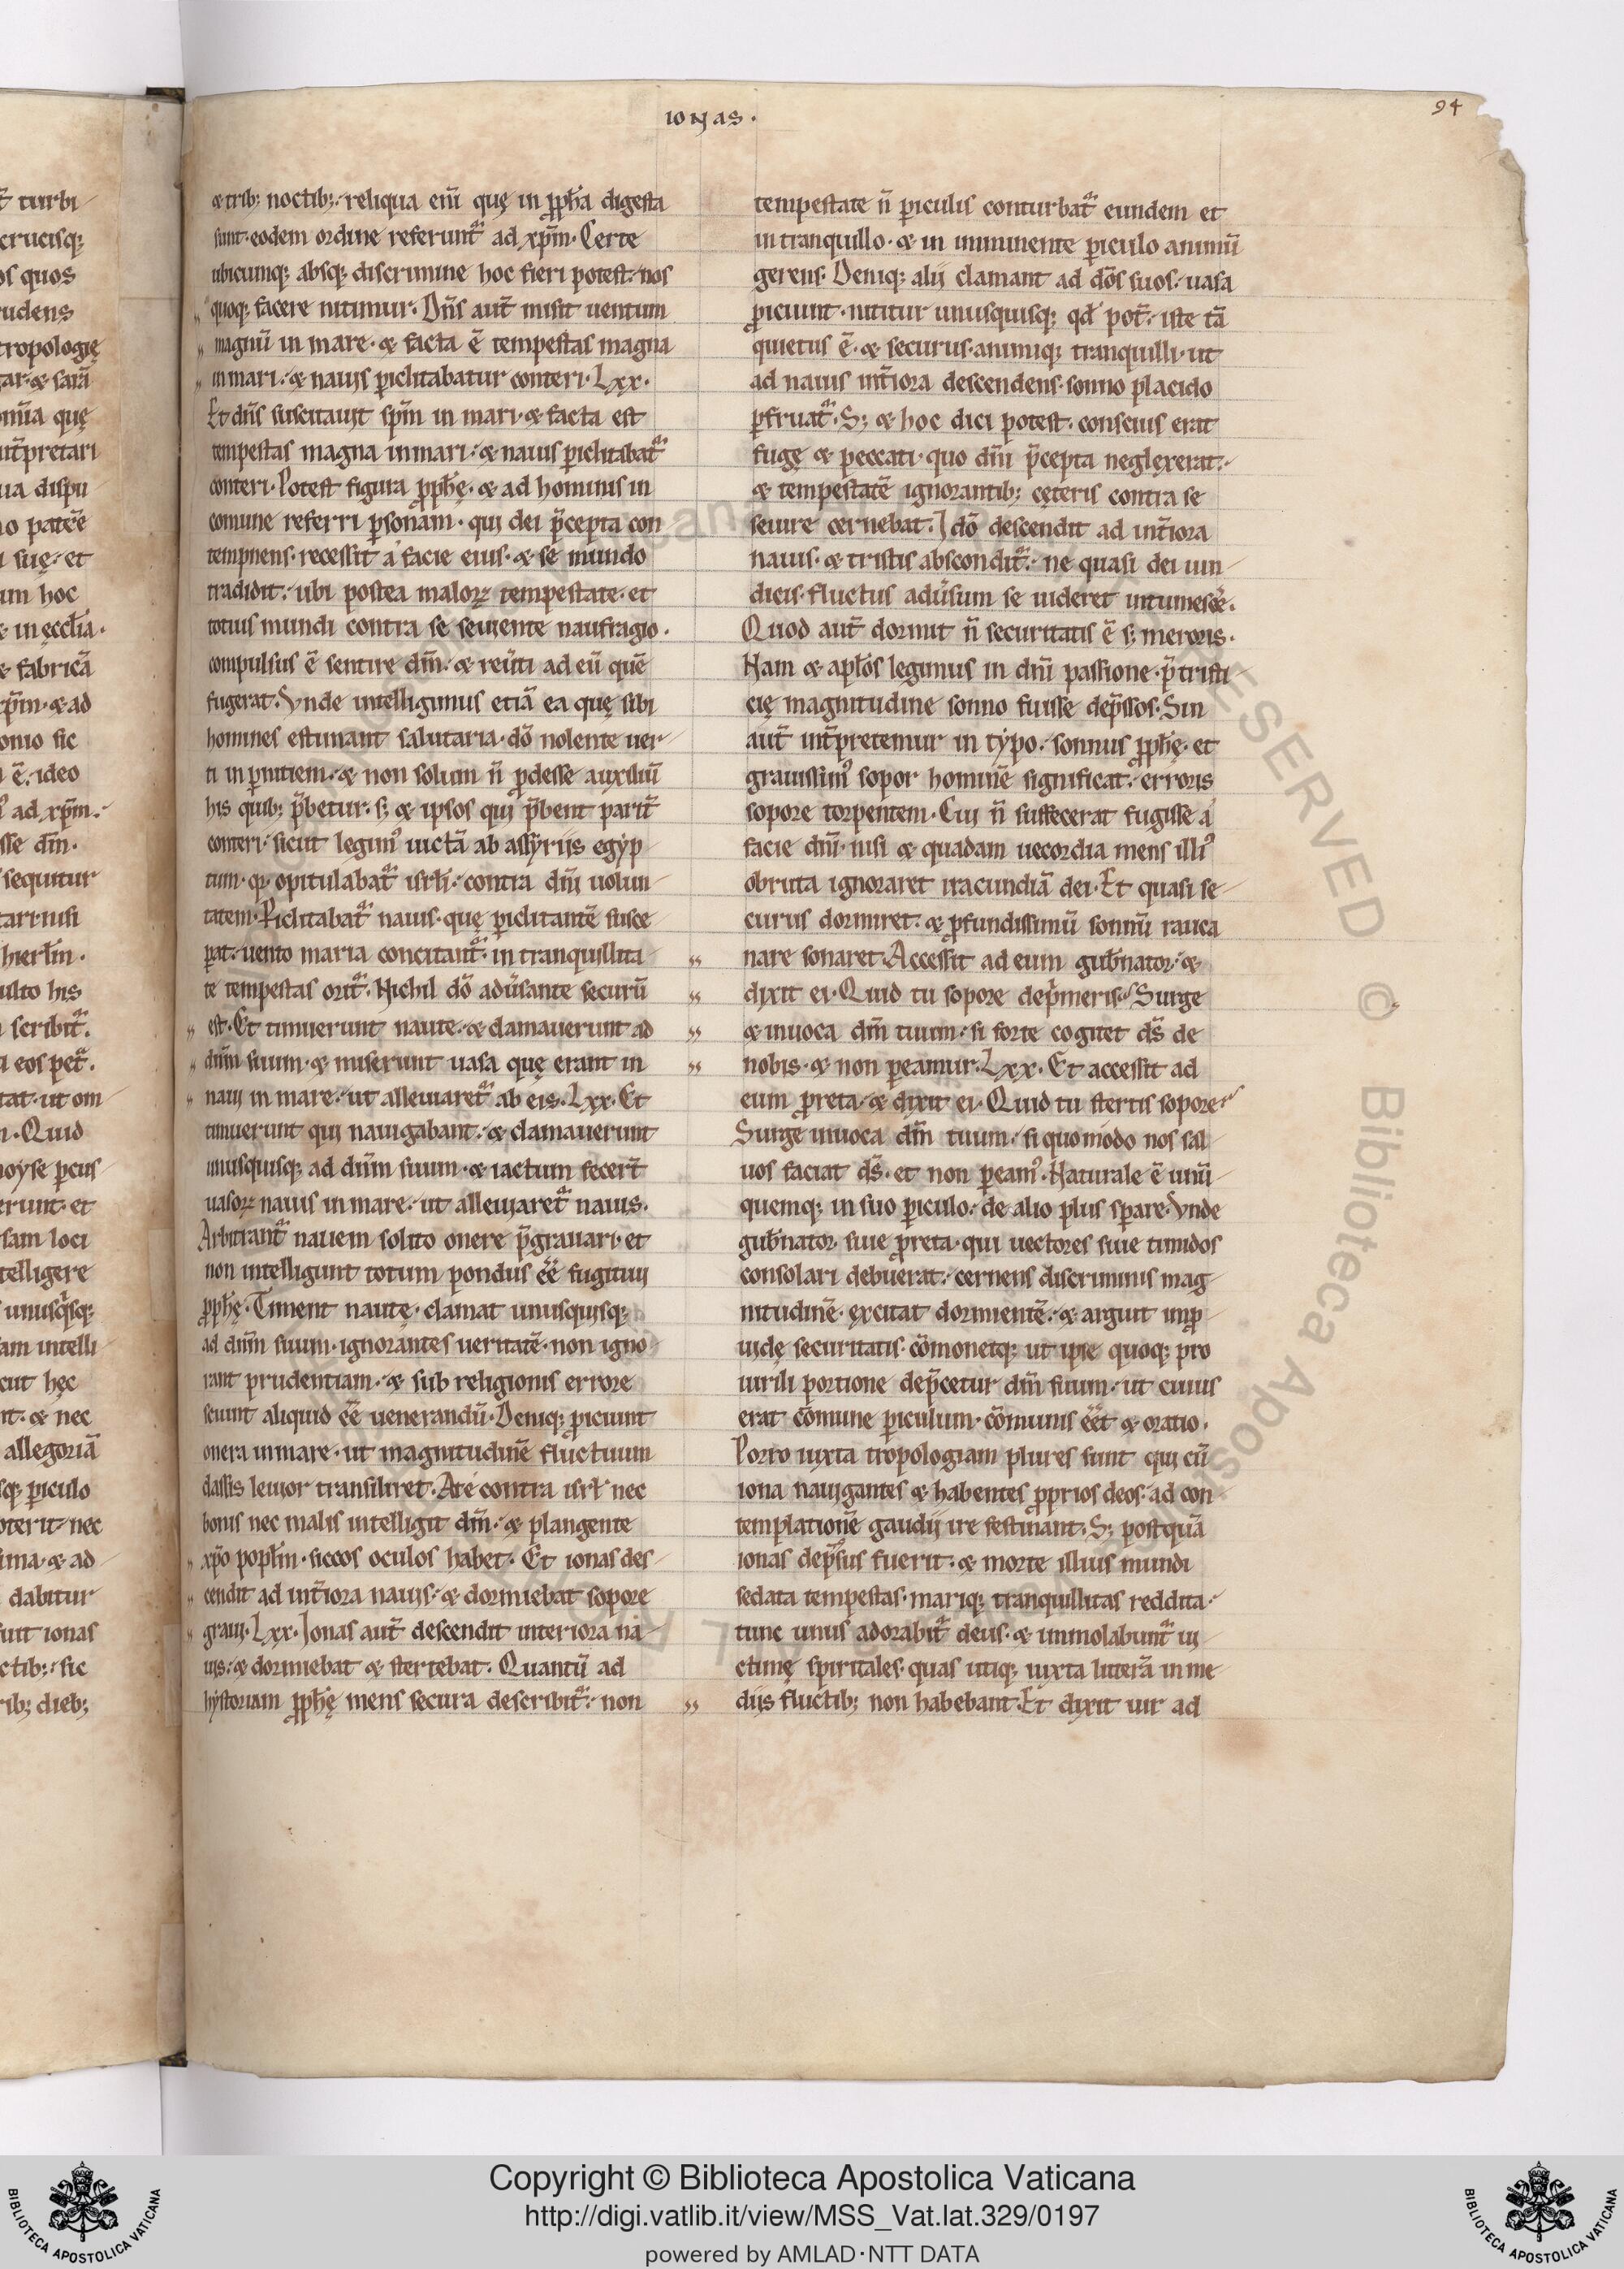 ionas.
94
&trib; noctib;. reliqua eni̅ quę in p̅ph̅a digesta
sunt. eodem ordine referunt᷑ ad xp̅m. Certe
ubicunq; absq; discrimine hoc fieri potest. nos
quoq; facere nitimur. Dn̅s aut̅ misit uentum
magnu̅ in mare. & facta e̅ tempestas magna
in mari. & nauis p̲iclitabatur conteri. Lxx.
Et dn̅s suscitauit sp̅m in mari. & facta est
tempestas magna in mari. & nauis p̲iclitabat᷑
conteri. Potest figura p̅ph̅ę. & ad hominis in
comune referri p̲sonam. qui dei p̅cepta con
tempnens. recessit a facie eius. & se mundo
tradidit. ubi postea maloꝝ tempestate. et
totius mundi contra se seuiente naufragio.
compulsus e̅ sentire dm̅. & reu̅ti ad eu̅ que̅
fugerat. Vnde intelligimus etia̅ ea quę sibi
homines estimant salutaria. do̅ nolente uer
ti in p̲nitiem. & non solum n̅ ꝓdesse auxiliu̅
his quib; p̅betur. s; & ipsos qui p̅bent parit̅
conteri. sicut legim᷒ uicta̅ ab assyriis egyp
tum. qꝛ opitulabat᷑ isrl̅. contra dn̅i uolun
tatem. Piclitabat᷑ nauis. quę p̲iclitante̅ susce
p̲at. uento maria concitant᷑. in tranquillita
te tempestas orit᷑. Nichil do̅ adu̅sante securu̅
est. Et timuerunt naute. & clamauerunt ad
dn̅m suum. & miserunt uasa quę erant in
naui in mare. ut alleuiaret᷑ ab eis. Lxx. Et
timuerunt qui nauigabant. & clamauerunt
unusquisq; ad dn̅m suum. & iactum fecer̅t
uasoꝝ nauis in mare. ut alleuiaret᷑ nauis.
Arbitrant᷑ nauem solito onere p̅grauari. et
non intelligunt totum pondus ee̅ fugitiui
p̅ph̅ę. Timent nautę. clamat unusquisq;
ad dn̅m suum. ignorantes ueritate̅. non igno
rant prudentiam. & sub religionis errore
sciunt aliquid ee̅ uenerandu̅. Deniq; ꝓiciunt
onera in mare. ut magnitudine̅ fluctuum
classis leuior transiliret. At e contra isrl̅ nec
bonis nec malis intelligit dm̅. & plangente
xp̅o popl̅m. siccos oculos habet. Et ionas des
cendit ad int̅iora nauis. & dormiebat sopore
graui. Lxx. Ionas aut̅ descendit interiora na
uis. & dormiebat & stertebat. Quantu̅ ad
hystoriam p̅ph̅ę mens secura describit᷑. non
tempestate n̅ p̲iculis conturbat᷑ eundem et
in tranquillo. & in imminente p̲iculo animu̅
gerens. Deniq; alij clamant ad do̅s suos. uasa
ꝓiciunt. nititur unusquisq; qd̅ pot̅. iste ta̅
quietus e̅. & securus. animiq; tranquilli. ut
ad nauis int̅iora descendens. sonno placido
p̲fruat᷑. S; & hoc dici potest. conscius erat
fugę & peccati. quo dn̅i p̅cepta neglexerat.
& tempestate̅ ignorantib; cęteris contra se
seuire cernebat. Ido̅ descendit ad int̅iora
nauis. & tristis abscondit᷑. ne quasi dei uin
dicis. fluctus adu̅sum se uideret intumesce̅.
Quod aut̅ dormit n̅ securitatis e̅ s; meroris.
Nam & apl̅os legimus in dn̅i passione. p̅ tristi
cię magnitudine sonno fuisse dep̅ssos. Sin
aut̅ int̅pretemur in typo. sonnus p̅ph̅ę. et
grauissim᷒ sopor homine̅ significat. erroris
sopore torpentem. Cui n̅ suffecerat fugisse a
facie dn̅i. nisi & quadam uecordia mens illi᷒
obruta ignoraret iracundia̅ dei. Et quasi se
curus dormiret. & ꝓfundissimu̅ sonnu̅ rauca
nare sonaret. Accessit ad eum gub̅nator. &
dixit ei. Quid tu sopore dep̅meris? Surge
& inuoca dm̅ tuum. si forte cogitet ds̅ de
nobis. & non p̲eamur. Lxx. Et accessit ad
eum ꝓreta. & dixit ei. Quid tu stertis sopore?
Surge inuoca dm̅ tuum. si quomodo nos sal
uos faciat ds̅. et non p̲eam᷒. Naturale e̅ unu̅
quemq; in suo p̲iculo. de alio plus sp̲are. Vnde
gub̅nator. siue ꝓreta. qui uectores siue timidos
consolari debuerat. cernens discriminis mag
nitudine̅. excitat dormiente̅. & arguit imꝓ
uidę securitatis. co̅monetq; ut ipse quoq; pro
uirili portione dep̅cetur dm̅ suum. ut cuius
erat co̅mune p̲iculum. co̅munis ee̅t & oratio.
Porro iuxta tropologiam plures sunt qui cu̅
iona nauigantes & habentes ꝓprios deos. ad con
templatione̅ gaudij ire festinant. S; postqua̅
ionas dep̅sus fuerit. & morte illius mundi
sedata tempestas. mariq; tranquillitas reddita.
tunc unus adorabit᷑ deus. & immolabunt᷑ ui
ctimę spiritales. quas utiq; iuxta littera̅ in me
diis fluctib; non habebant. Et dixit uir ad
Copyright © Biblioteca Apostolica Vaticana
http://digi.vatlib.it/view/MSS_Vat.lat.329/0197
powered by AMLAD·NTT DATA
BIBLIOTECA APOSTOLICA VATICANA
BIBLIOTECA APOSTOLICA VATICANA